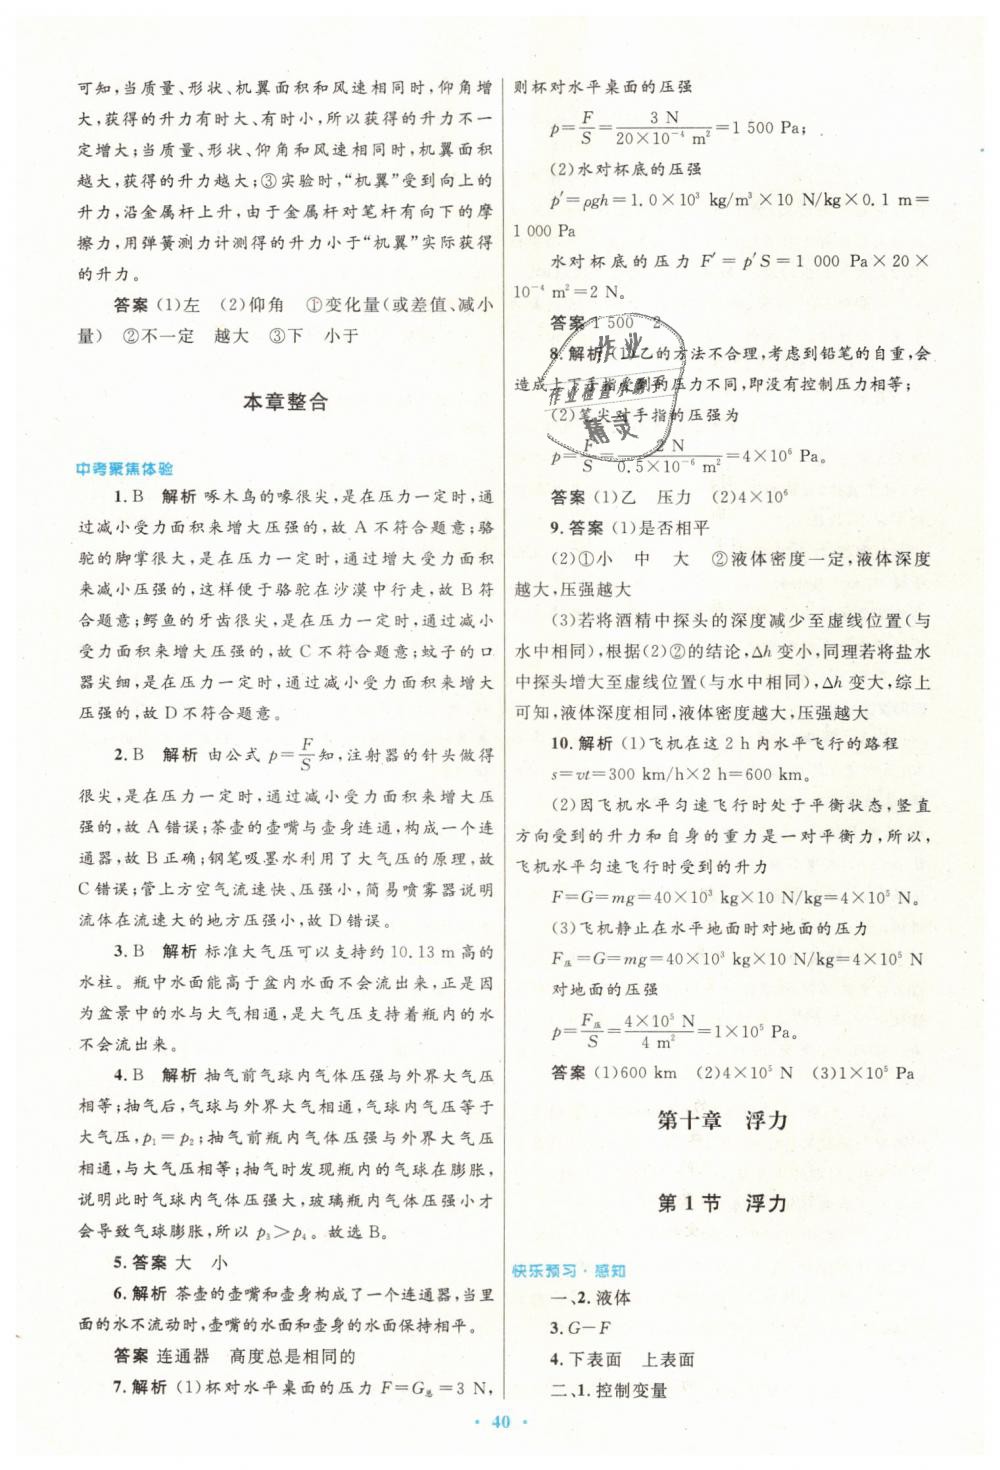 可知,当质量、形状、机翼面积和风速相同时,仰角增
大,获得的升力有时大、有时小,所以获得的升力不一
定增大;当质量、形状、仰角和风速相同时,机翼面积
越大,获得的升力越大;③实验时,“机翼”受到向上的
升力,沿金属杆上升,由于金属杆对笔杆有向下的摩
擦力,用弹簧测力计测得的升力小于“机翼”实际获得
的升力。
答案 (1)左 (2)仰角 ①变化量(或差值、减小
量) ②不一定 越大 ③下 小于
本章整合
中考聚焦体验
1.B 解析 啄木鸟的喙很尖,是在压力一定时,通
过减小受力面积来增大压强的,故 A 不符合题意;骆
驼的脚掌很大,是在压力一定时,通过增大受力面积
来减小压强的,这样便于骆驼在沙漠中行走,故 B 符
合题意;鳄鱼的牙齿很尖,是在压力一定时,通过减小
受力面积来增大压强的,故 C 不符合题意;蚊子的口
器尖细,是在压力一定时,通过减小受力面积来增大
压强的,故 D 不符合题意。
2.B 解析 由公式 p=F/S知,注射器的针头做得
很尖,是在压力一定时,通过减小受力面积来增大压
强的,故 A 错误;茶壶的壶嘴与壶身连通,构成一个连
通器,故 B 正确;钢笔吸墨水利用了大气压的原理,故
C 错误;管上方空气流速快、压强小,简易喷雾器说明
流体在流速大的地方压强小,故 D 错误。
3.B 解析 标准大气压可以支持约 10.13 m 高的
水柱。瓶中水面能高于盆内水面不会流出来,正是因
为盆景中的水与大气相通,是大气压支持着瓶内的水
不会流出来。
4.B 解析 抽气前气球内气体压强与外界大气压
相等;抽气后,气球与外界大气相通,气球内气压等于
大气压,p₁=p₂;抽气前瓶内气体压强与外界大气压
相通,与大气压相等;抽气时发现瓶内的气球在膨胀,
说明此时气球内气体压强大,玻璃瓶内气体压强小才
会导致气球膨胀,所以 p₃>p₄。故选 B。
5.答案 大 小
6.解析 茶壶的壶嘴和壶身构成了一个连通器,当里
面的水不流动时,壶嘴的水面和壶身的水面保持相平。
答案 连通器 高度总是相同的
7.解析 (1)杯对水平桌面的压力 F=G总=3 N,
则杯对水平桌面的压强
p=F/S=3 N/(20×10⁻⁴ m²)=1 500 Pa;
(2)水对杯底的压强
p′=ρgh=1.0×10³ kg/m³×10 N/kg×0.1 m=
1 000 Pa
水对杯底的压力 F′=p′S=1 000 Pa×20×
10⁻⁴ m²=2 N。
答案 1 500 2
8.解析 (1)乙的方法不合理,考虑到铅笔的自重,会
造成上下手指受到的压力不同,即没有控制压力相等;
(2)笔尖对手指的压强为
p=F/S=2 N/(0.5×10⁻⁶ m²)=4×10⁶ Pa。
答案 (1)乙 压力 (2)4×10⁶
9.答案 (1)是否相平
(2)①小 中 大 ②液体密度一定,液体深度
越大,压强越大
(3)若将酒精中探头的深度减少至虚线位置(与
水中相同),根据(2)②的结论,Δh 变小,同理若将盐水
中探头增大至虚线位置(与水中相同),Δh 变大,综上
可知,液体深度相同,液体密度越大,压强越大
10.解析 (1)飞机在这 2 h 内水平飞行的路程
s=vt=300 km/h×2 h=600 km。
(2)因飞机水平匀速飞行时处于平衡状态,竖直
方向受到的升力和自身的重力是一对平衡力,所以,
飞机水平匀速飞行时受到的升力
F=G=mg=40×10³ kg×10 N/kg=4×10⁵ N。
(3)飞机静止在水平地面时对地面的压力
F压=G=mg=40×10³ kg×10 N/kg=4×10⁵ N
对地面的压强
p=F压/S=4×10⁵ N/4 m²=1×10⁵ Pa。
答案 (1)600 km (2)4×10⁵ N (3)1×10⁵ Pa
第十章 浮力
第 1 节 浮力
快乐预习·感知
一、2.液体
3.G-F
4.下表面 上表面
二、1.控制变量
· 40 ·
作业
精灵